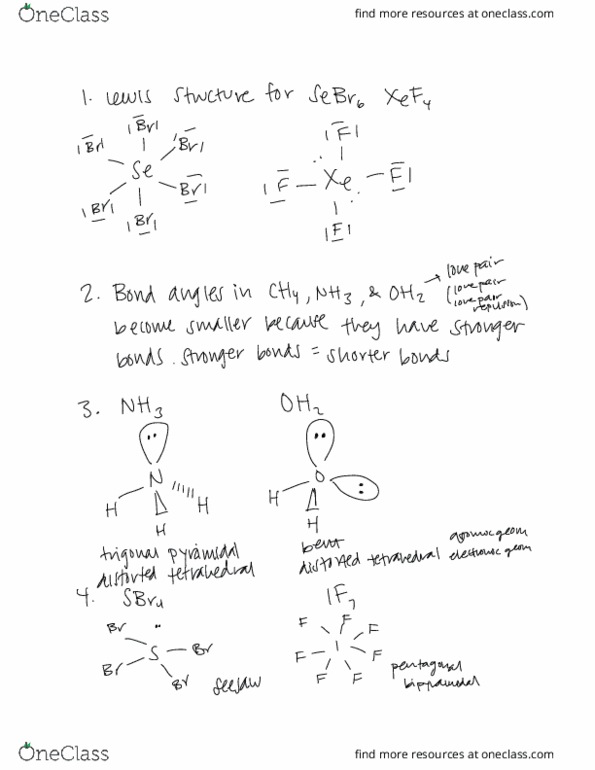 OneClass
find more resources at oneclass.com
1. Lewis Structure for SeBr6 XeF4
Br Br Br Se Br Br Br
F F Xe F F
2. Bond angles in CH4, NH3, & OH2 → lone pair (lone pair lone pair repulsion)
become smaller because they have stronger
bonds. stronger bonds = shorter bonds
3. NH3 OH2
N H H H
O H H
trigonal pyramidal
distorted tetrahedral
bent atomic geom
distorted tetrahedral electronic geom
4. SBr4 IF7
Br Br S Br Br seesaw
F F F F I F F F
pentagonal
bipyramidal
OneClass
find more resources at oneclass.com